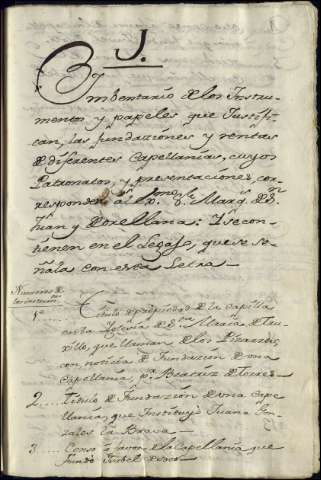 J.
Ymbentario de los Instru-
mentos y papeles que Justifi-
can, las fundaciones y rentas
de diferentes Capellanías, cuyos
Patronatos, y presentaciones cor-
responden al Ex.^mo S.^r Marq.^s de S.^n
Juan y Orellana: Y se con-
tienen en el Legajo, que se se-
ñala con esta Letra
Numeros de
1º ... Titulo de propiedad de la Capilla
en la Yglesia de S.^ta Maria de Tru-
xillo, que llaman de los Pizarros,
con noticia de Fundacion de una
Capellania, p.^r Beatriz de Torres
2 ... Titulo de Fundacion de una Cape-
llania, que Instituyó Juana Gon-
zales la Brava
3 ... Censo a favor de la Capellania que
fundó Isabel